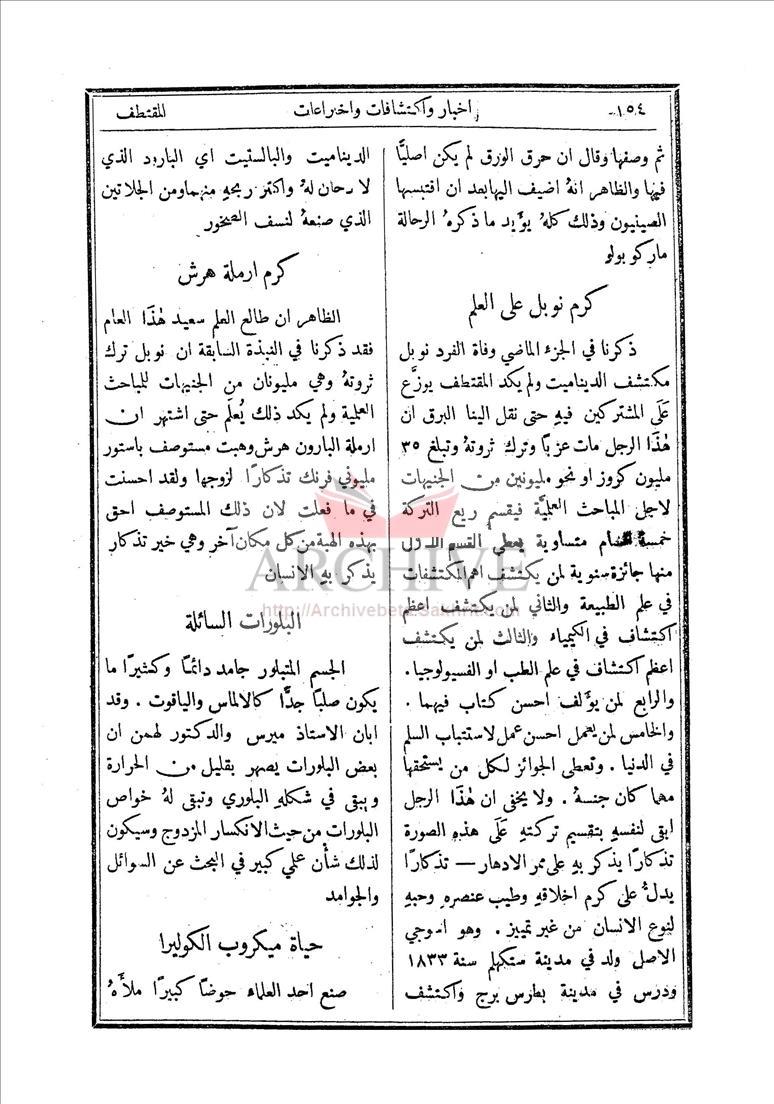 ١٥٤ اخبار واكتشافات واختراعات المقتطف
ثم وصفها وقال ان حرق الورق لم يكن اصليًّا
فيها والظاهر انهُ اضيف اليها بعد ان اقتبسها
الصينيون وذلك كلهُ يؤيد ما ذكرهُ الرحالة
ماركو بولو
كرم نوبل على العلم
ذكرنا في الجزء الماضي وفاة الفرد نوبل
مكتشف الديناميت ولم يكد المقتطف يوزَّع
عَلَى المشتركين فيهِ حتى نقل الينا البرق ان
هٰذا الرجل مات عزبًا وترك ثروتهُ وتبلغ ٣٥
مليون كروز او نحو مليونين من الجنيهات
لاجل المباحث العلميَّة فيقسم ريع التركة
خمسة اقسام متساوية يعطى القسم الاول
منها جائزة سنوية لمن يكتشف اهم المكتشفات
في علم الطبيعة والثاني لمن يكتشف اعظم
اكتشاف في الكيمياء والثالث لمن يكتشف
اعظم اكتشاف في علم الطب او الفسيولوجيا .
والرابع لمن يؤَلف احسن كتاب فيهما .
والخامس لمن يعمل احسن عمل لاستتباب السلم
في الدنيا . وتعطى الجوائز لكل من يستحقها
مهما كان جنسهُ . ولا يخفى ان هٰذا الرجل
ابقى لنفسهِ بتقسيم تركتهِ عَلَى هذه الصورة
تذكارًا يذكر بهِ على ممر الادهار — تذكارًا
يدلُّ على كرم اخلاقهِ وطيب عنصرهِ وحبهِ
لنوع الانسان من غير تمييز . وهو اسوجي
الاصل ولد في مدينة ستكهلم سنة ١٨٣٣
ودرس في مدينة بطرس برج واكتشف
الديناميت والبالستيت اي البارود الذي
لا دخان لهُ واكثر ربحهِ منهما ومن الجلاتين
الذي صنعهُ لنسف الصخور
كرم ارملة هرش
الظاهر ان طالع العلم سعيد هٰذَا العام
فقد ذكرنا في النبذة السابقة ان نوبل ترك
ثروتهُ وهي مليونان من الجنيهات للمباحث
العلمية ولم يكد ذلك يُعلَم حتى اشتهر ان
ارملة البارون هرش وهبت مستوصف باستور
مليوني فرنك تذكارًا لزوجها ولقد احسنت
في ما فعلت لان ذلك المستوصف احق
بهذه الهبة من كل مكان آخر وهي خير تذكار
يذكر بهِ الانسان
البلورات السائلة
الجسم المتبلور جامد دائمًا وكثيرًا ما
يكون صلبًا جدًّا كالالماس والياقوت . وقد
ابان الاستاذ ميرس والدكتور لهمن ان
بعض البلورات يصهر بقليل من الحرارة
ويبقى في شكلهِ البلوري وتبقى لهُ خواص
البلورات من حيث الانكسار المزدوج وسيكون
لذلك شأن علمي كبير في البحث عن السوائل
والجوامد
حياة ميكروب الكوليرا
صنع احد العلماء حوضًا كبيرًا ملأَهُ
ARCHIVE